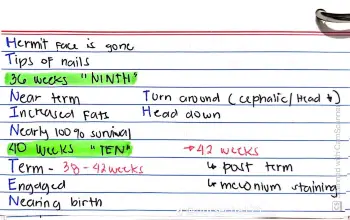 Hermit Face is gone
Tips of nails
36 weeks "NINTH"
Near term Turn around (cephalic/Head ↓)
Increased Fats Head down
Nearly 100% survival
40 Weeks "TEN" → 42 weeks
Term - 38 - 42 weeks ↳ post term
Engaged ↳ meconium staining
Nearing birth